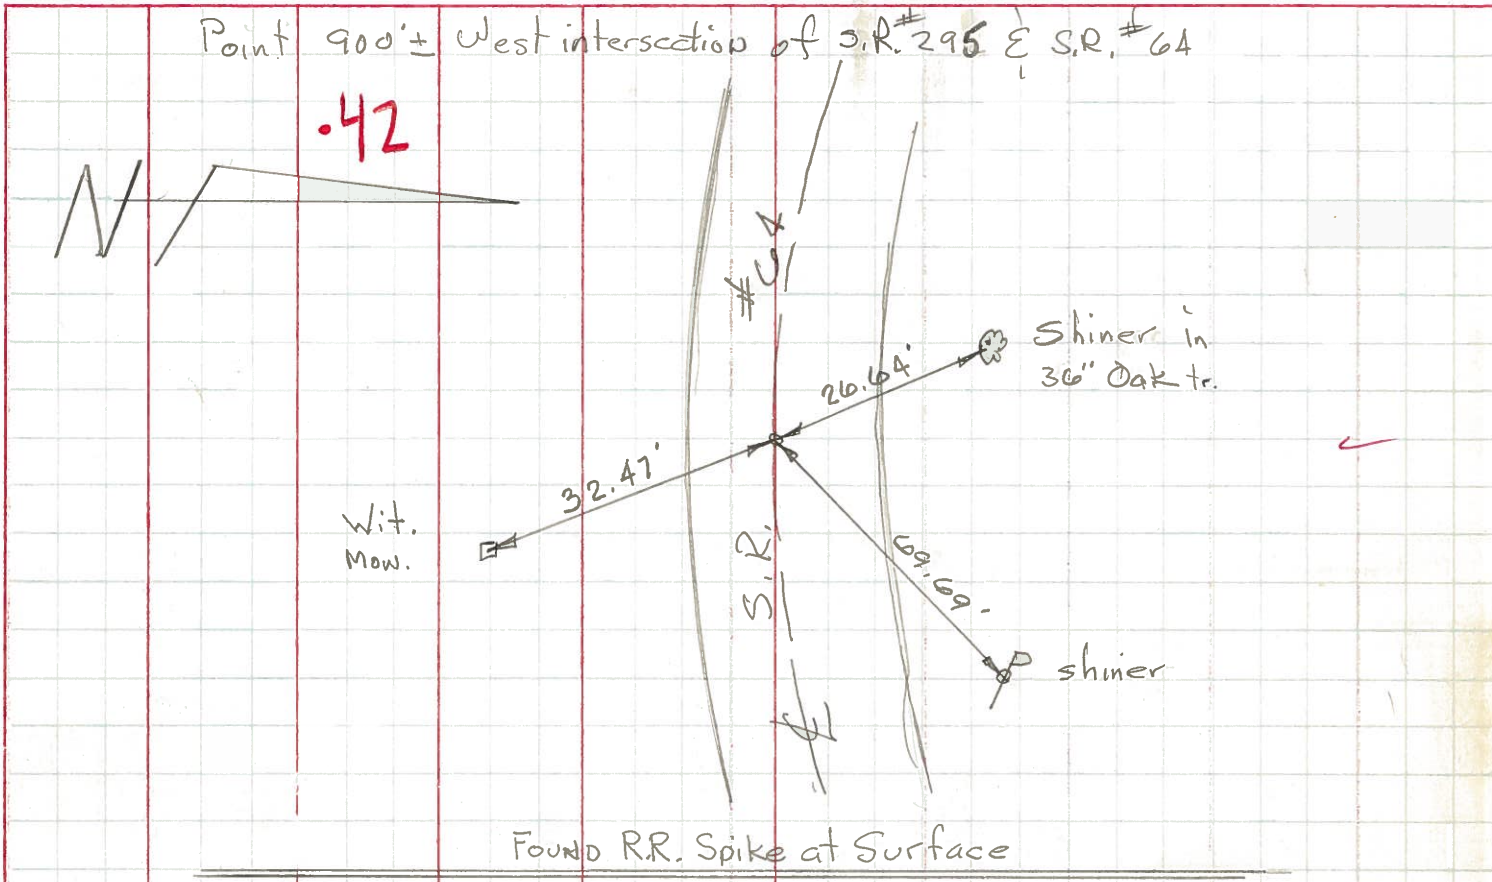 Point 900'± West intersection of S.R.#295 & S.R.#64
.42
N
S.R. #64
Shiner in
36" Oak tr.
26.64'
32.47'
Wit.
Mon.
69.69'
shiner
℄
Found R.R. Spike at Surface